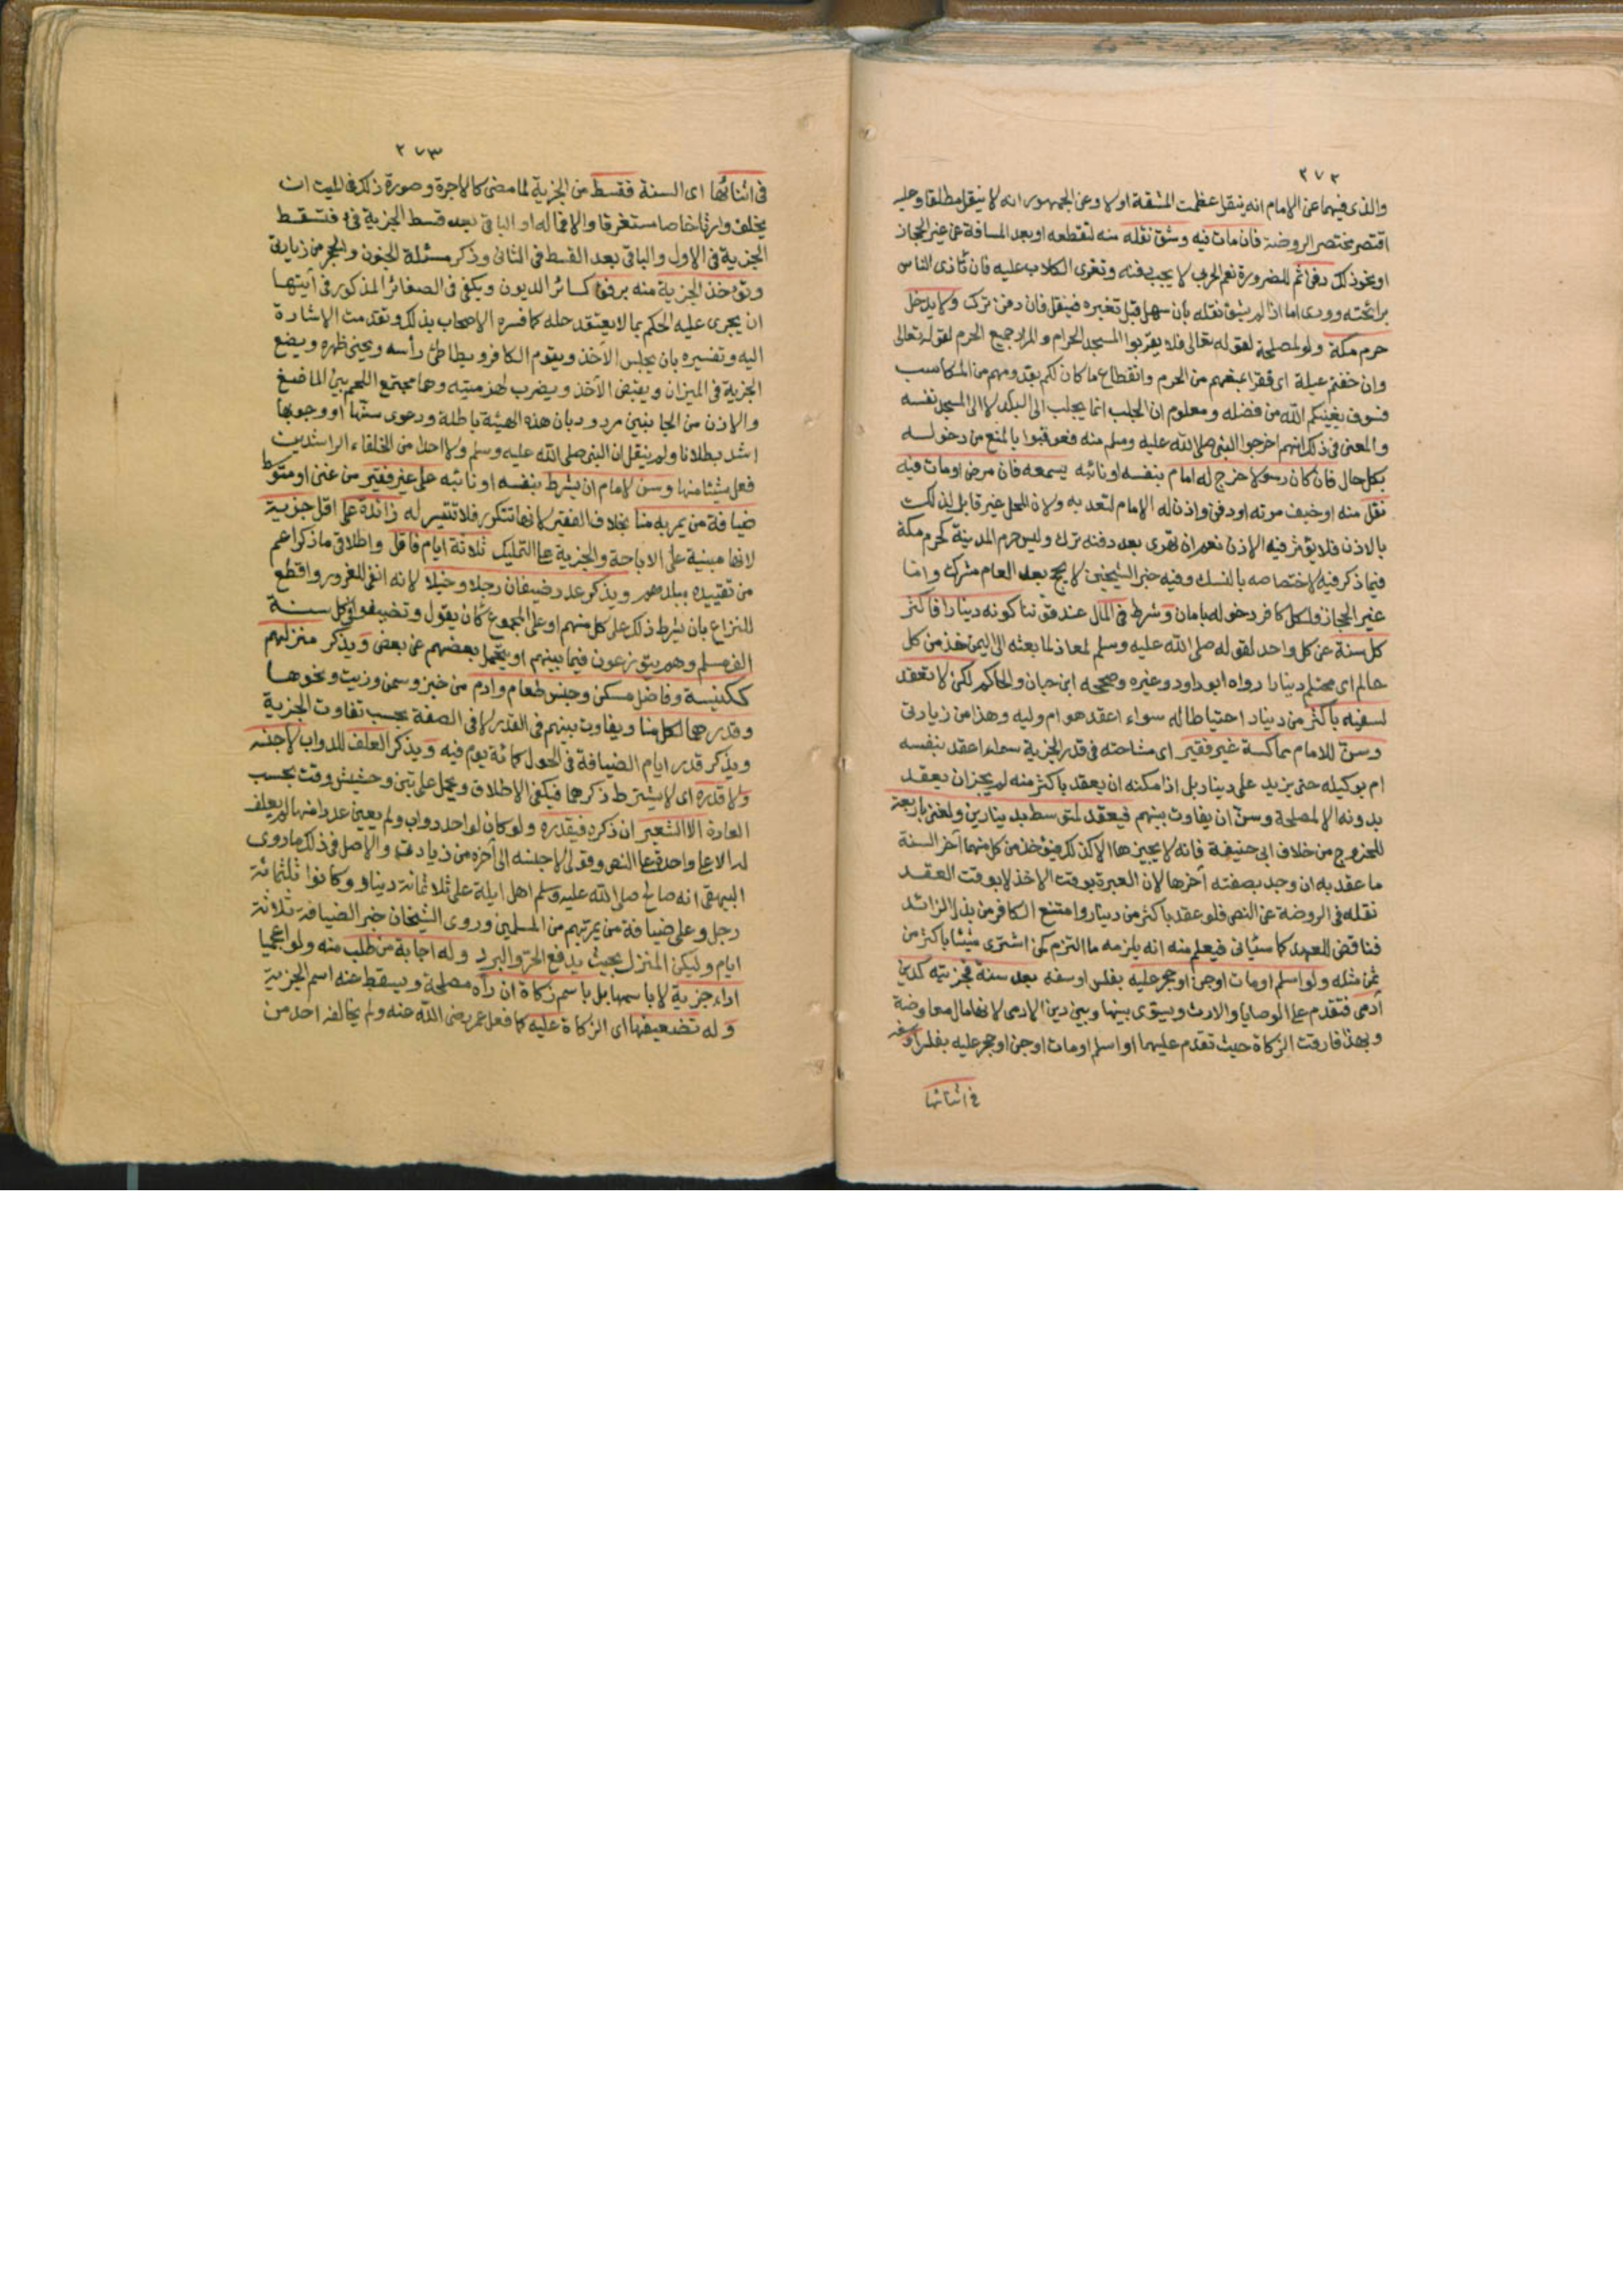 ٢٧٢
والذى فيهما عن الامام انه ينقل عظمت المشقة اولا وعن الجمهور انه لا ينقل مطلقا وعليه
اقتصر مختصر الروضة فان مات فيه وشق نقله منه لتقطعه او بعد المسافة عن غير الحجاز
او نحو ذلك دفن ثم للضرورة نعم الحربى لا يجب دفنه وتغرى الكلاب عليه فان تاذى الناس
برائحته وورى اما اذا لم يشق نقله بأن سهل قبل تغيره فينقل فان دفن ترك ولا يدخل
حرم مكة ولو لمصلحة لقوله تعالى فلا يقربوا المسجد الحرام والمراد جميع الحرم لقوله تعالى
وان خفتم عيلة اى فقرا بمنعهم من الحرم وانقطاع ما كان لكم بقدومهم من المكاسب
فسوف يغنيكم الله من فضله ومعلوم ان الجلب انما يجلب الى البلد لا الى المسجد نفسه
والمعنى فى ذلك انهم اخرجوا النبى صلى الله عليه وسلم منه فعوقبوا بالمنع من دخوله
بكل حال فان كان رسولا خرج له امام بنفسه او نائبه يسمعه فان مرض او مات فيه
نقل منه او خيف موته او دفن واذن له الامام لتعديه ولان المحل غير قابل لذلك
بالاذن فلا يؤثر فيه الاذن نعم ان تهرى بعد دفنه ترك وليس حرم المدينة كحرم مكة
فيما ذكر فيه لاختصاصه بالنسك وفيه خبر الشيخين لا يحج بعد العام مشرك واما
غير الحجاز فلكل كافر دخوله بامان وشرط فى المال عند قوتنا كونه دينارا فاكثر
كل سنة عن كل واحد لقوله صلى الله عليه وسلم لمعاذ لما بعثه الى اليمن خذ من كل
حالم اى محتلم دينارا رواه ابو داود وغيره وصححه ابن حبان والحاكم لكن لا تعقد
لسفيه باكثر من دينار احتياطا له سواء اعقد هو ام وليه وهذا من زيادتى
وسن للامام مماكسة غير فقير اى مشاحته فى قدر الجزية سواء اعقد بنفسه
ام بوكيله حتى يزيد على دينار بل اذا امكنه ان يعقد باكثر منه لم يجز ان يعقد
بدونه الا لمصلحة وسن ان يفاوت بينهم فيعقد لمتوسط بدينارين ولغنى باربعة
للخروج من خلاف ابى حنيفة فانه لا يجيزها الا كذلك فيؤخذ من كل منهما آخر السنة
ما عقد به ان وجد بصفته آخرها لان العبرة بوقت الاخذ لا بوقت العقد
نقله فى الروضة عن النص فلو عقد باكثر من دينار وامتنع الكافر من بذل الزائد
فناقض للعهد كما سيأتى فيعلم منه انه يلزمه ما التزم كمن اشترى شيئا باكثر من
ثمن مثله ولو اسلم او مات او جن او حجر عليه بفلس او سفه بعد سنة فجزيته كدين
آدمى فتقدم على الوصايا والارث ويسوى بينها وبين دين الادمى لانها مال معاوضة
وبهذا فارقت الزكاة حيث تقدم عليهما او اسلم او مات او جن او حجر عليه بفلس او سفه
فى اثنائها
٢٧٣
فى اثنائها اى السنة فقسط من الجزية لما مضى كالاجرة وصورة ذلك فى الميت ان
يخلف وارثا خاصا مستغرقا والا فماله او الباقى بعد قسط الجزية فئ فتسقط
الجزية فى الاول والباقى بعد القسط فى الثانى وذكر مسئلة الجنون والحجر من زيادتى
وتؤخذ الجزية منه برفق كسائر الديون ويكفى فى الصغار المذكور فى آيتها
ان يجرى عليه الحكم بما لا يعتقد حله كما فسره الاصحاب بذلك وتقدمت الاشارة
اليه وتفسيره بان يجلس الآخذ ويقوم الكافر ويطاطئ رأسه ويحنى ظهره ويضع
الجزية فى الميزان ويقبض الآخذ ويضرب لهزمتيه وهما مجتمع اللحم بين الماضغ
والاذن من الجانبين مردود بان هذه الهيئة باطلة ودعوى سنها او وجوبها
اشد بطلانا ولم ينقل ان النبى صلى الله عليه وسلم ولا احدا من الخلفاء الراشدين
فعل شيئا منها وسن لامام ان يشرط بنفسه او نائبه على غير فقير من غنى او متوسط
ضيافة من يمر به منا بخلاف الفقير لانها تتكرر فلا تتيسر له زائدة على اقل جزية
لانها مبنية على الاباحة والجزية على التمليك ثلاثة ايام فاقل واطلاقى ما ذكر اعم
من تقييده ببلدهم ويذكر عدد ضيفان رجلا وخيلا لانه انفى للغرور واقطع
للنزاع بان يشرط ذلك على كل منهم او على المجموع كان يقول وتضيفوا فى كل سنة
الف مسلم وهم يتوزعون فيما بينهم او يتحمل بعضهم عن بعض ويذكر منزلهم
ككنيسة وفاضل مسكن وجنس طعام وادم من خبز وسمن وزيت ونحوها
وقدرهما لكل منا ويفاوت بينهم فى القدر لا فى الصفة بحسب تفاوت الجزية
ويذكر قدر ايام الضيافة فى الحول كمائة يوم فيه ويذكر العلف للدواب لا جنسه
ولا قدره اى لا يشترط ذكرهما فيكفى الاطلاق ويحمل على تبن وحشيش وقت بحسب
العادة الا الشعير ان ذكره فيقدره ولو كان لواحد دواب ولم يعين عددا منها لم يعلف
له الا على واحدة على النص وقولى لا جنسه الى آخره من زيادتى والاصل فى ذلك ما روى
البيهقى انه صالح صلى الله عليه وسلم اهل ايلة على ثلاثمائة دينار وكانوا ثلثمائة
رجل وعلى ضيافة من يمر بهم من المسلمين وروى الشيخان خبر الضيافة ثلاثة
ايام وليكن المنزل بحيث يدفع الحر والبرد وله اجابة من طلب منه ولو اعجميا
اداء جزية لا باسمها بل باسم زكاة ان رآه مصلحة ويسقط عنه اسم الجزية
وله تضعيفها اى الزكاة عليه كما فعل عمر رضى الله عنه ولم يخالفه احد من